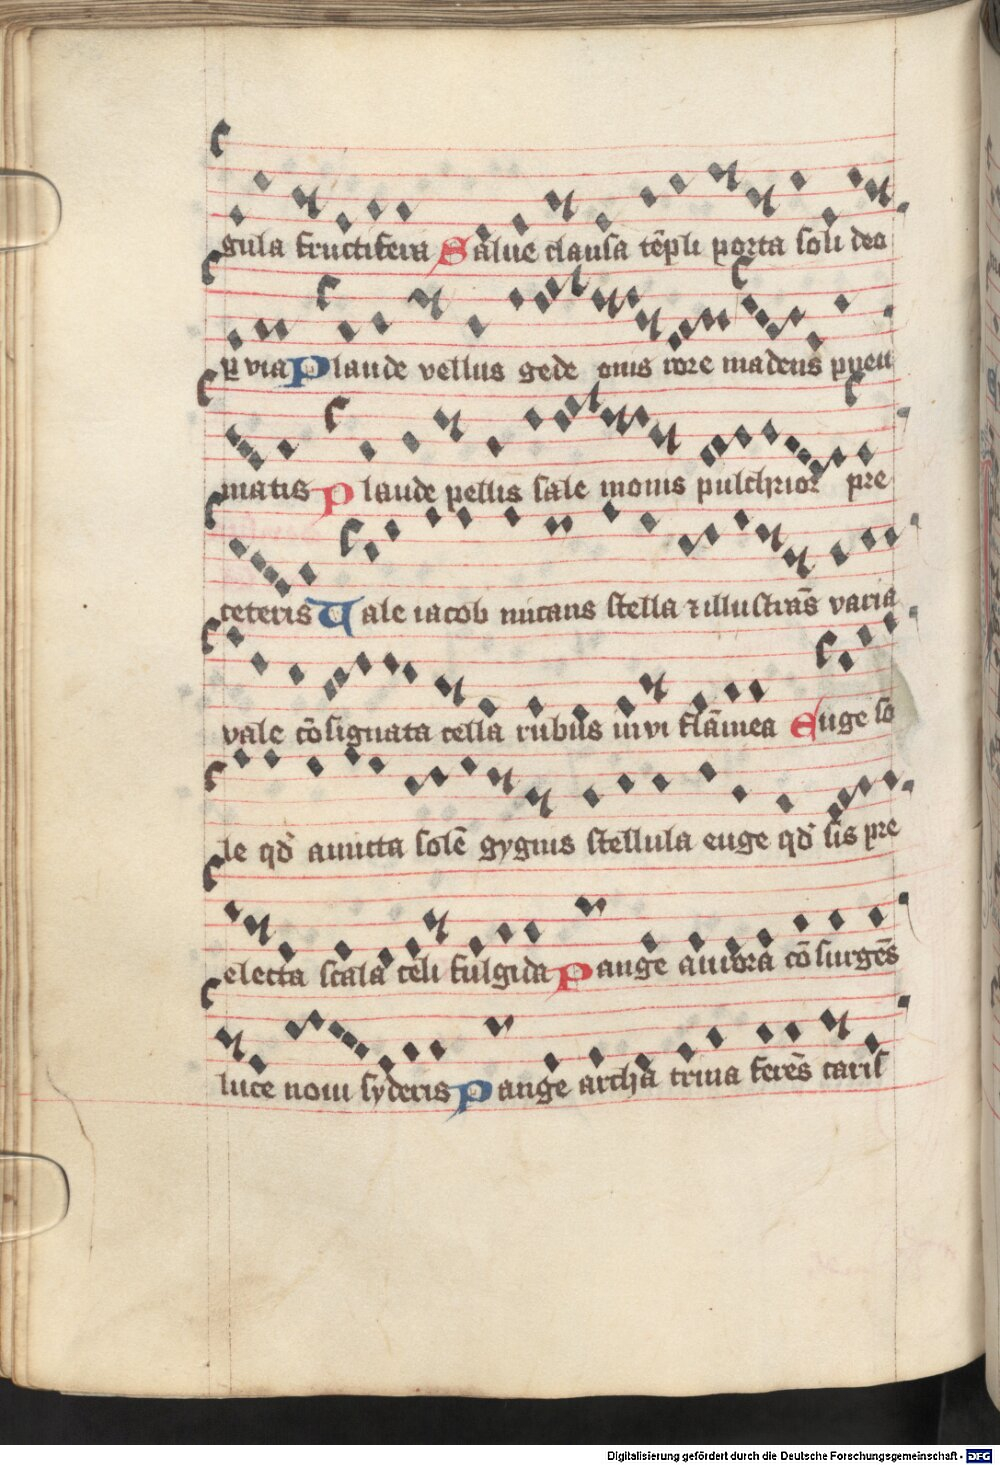 gula fructifera Salue clausa tēpli porta soli deo
ꝑ via Plaude vellus gede onis rore madens pneu
matis Plaude pellis sale monis pulchrior pre
ceteris Vale iacob micans stella ⁊ illustrās varia
vale cōsignata cella rubus in vi flāmea Euge so
le qd̄ amicta solē gygnis stellula euge qd̄ sis pre
electa scala celi fulgida Pange aurora cōsurgēs
luce noui syderis Pange archa trina ferēs caris
Digitalisierung gefördert durch die Deutsche Forschungsgemeinschaft - DFG